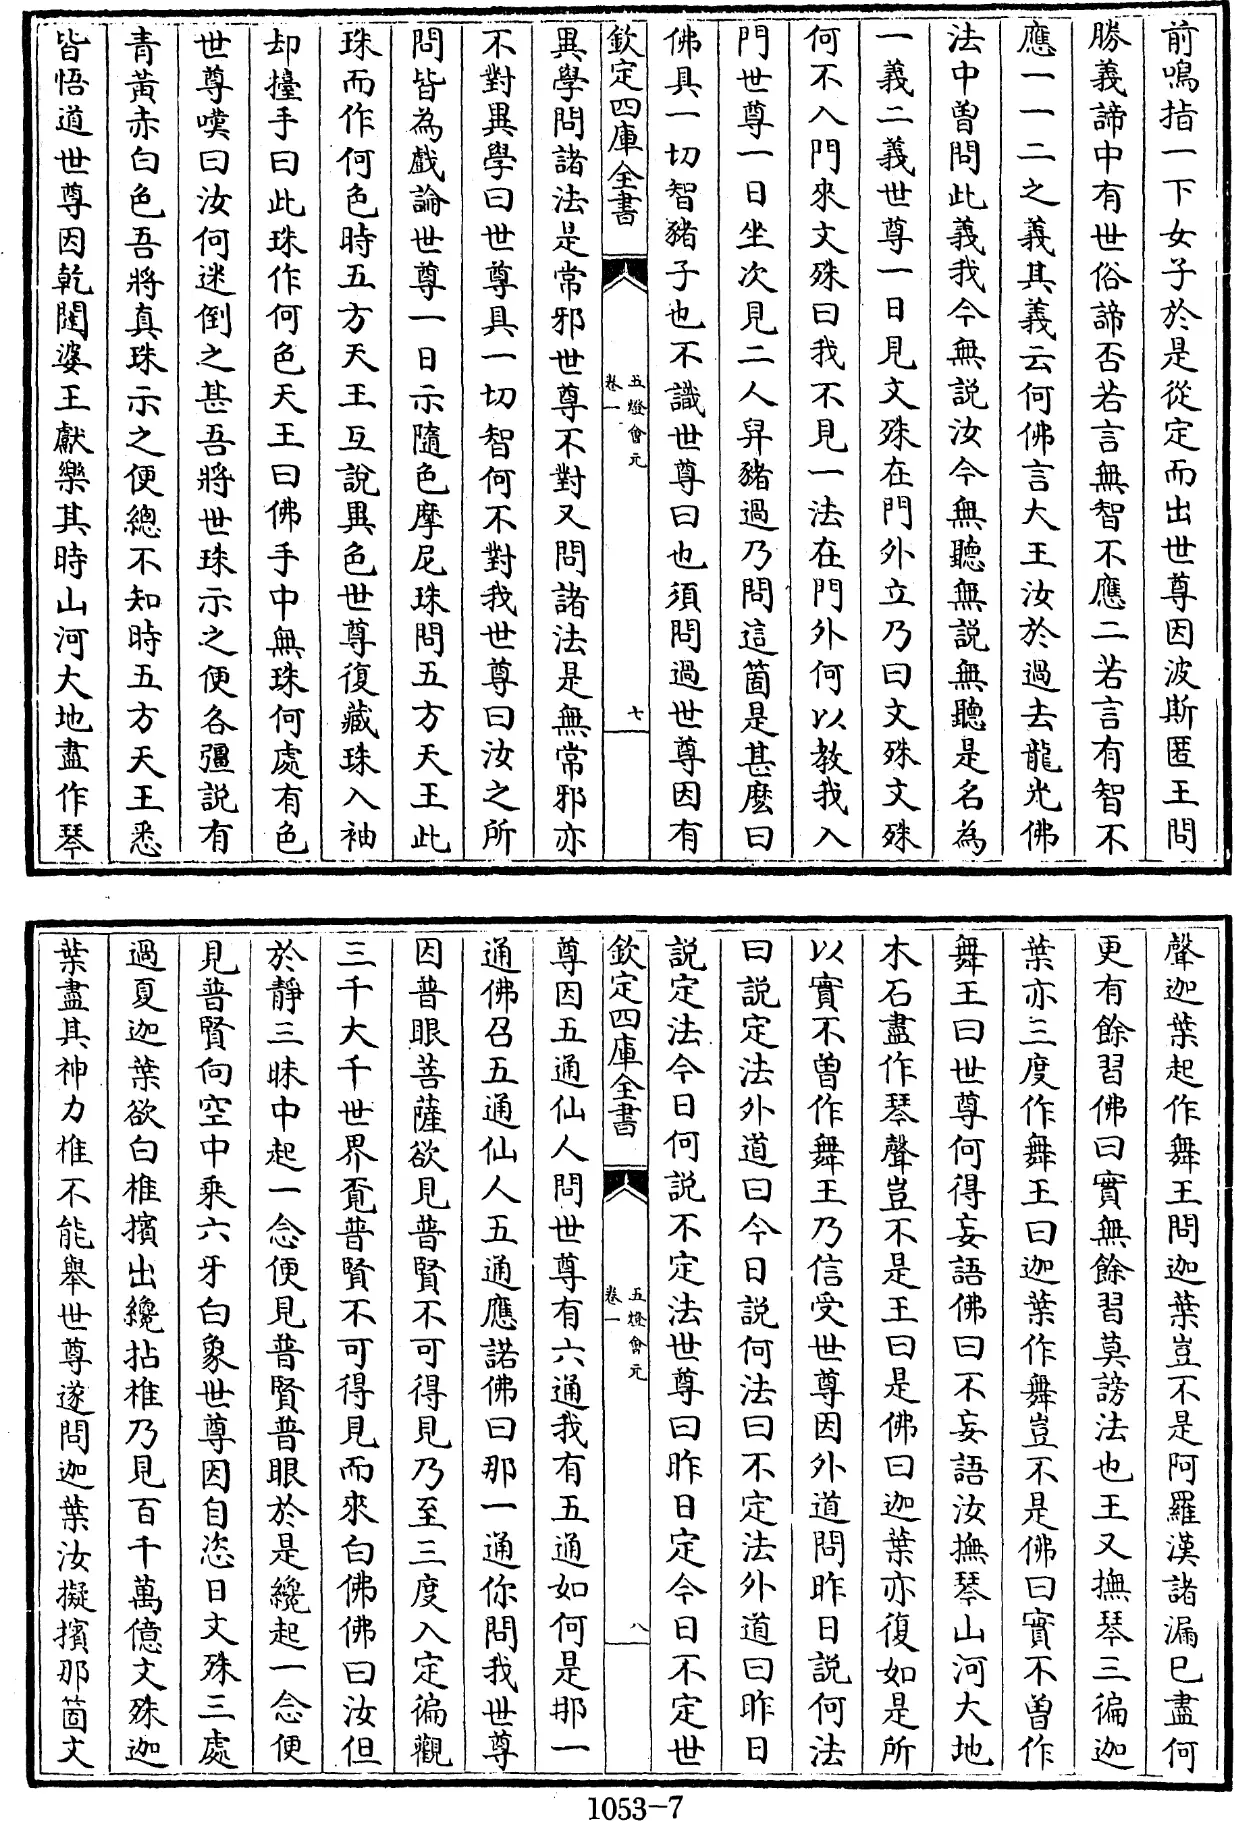 前鳴指一下女子於是從定而出世尊因波斯匿王問
勝義諦中有世俗諦否若言無智不應二若言有智不
應一一二之義其義云何佛言大王汝於過去龍光佛
法中曽問此義我今無説汝今無聽無説無聽是名為
一義二義世尊一日見文殊在門外立乃曰文殊文殊
何不入門來文殊曰我不見一法在門外何以教我入
門世尊一日坐次見二人舁豬過乃問這箇是甚麽曰
佛具一切智豬子也不識世尊曰也須問過世尊因有
欽定四庫全書
五燈會元
卷一
七
異學問諸法是常邪世尊不對又問諸法是無常邪亦
不對異學曰世尊具一切智何不對我世尊曰汝之所
問皆為戲論世尊一日示隨色摩尼珠問五方天王此
珠而作何色時五方天王互說異色世尊復藏珠入袖
却擡手曰此珠作何色天王曰佛手中無珠何處有色
世尊嘆曰汝何迷倒之甚吾將世珠示之便各彊説有
青黃赤白色吾將真珠示之便總不知時五方天王悉
皆悟道世尊因乾闥婆王獻樂其時山河大地盡作琴
聲迦葉起作舞王問迦葉豈不是阿羅漢諸漏已盡何
更有餘習佛曰實無餘習莫謗法也王又撫琴三徧迦
葉亦三度作舞王曰迦葉作舞豈不是佛曰實不曽作
舞王曰世尊何得妄語佛曰不妄語汝撫琴山河大地
木石盡作琴聲豈不是王曰是佛曰迦葉亦復如是所
以實不曽作舞王乃信受世尊因外道問昨日説何法
曰説定法外道曰今日説何法曰不定法外道曰昨日
説定法今日何説不定法世尊曰昨日定今日不定世
欽定四庫全書
五燈會元
卷一
八
尊因五通仙人問世尊有六通我有五通如何是那一
通佛召五通仙人五通應諾佛曰那一通你問我世尊
因普眼菩薩欲見普賢不可得見乃至三度入定徧觀
三千大千世界覔普賢不可得見而來白佛佛曰汝但
於靜三昧中起一念便見普賢普眼於是纔起一念便
見普賢向空中乘六牙白象世尊因自恣日文殊三處
過夏迦葉欲白椎擯出纔拈椎乃見百千萬億文殊迦
葉盡其神力椎不能舉世尊遂問迦葉汝擬擯那箇文
1053-7